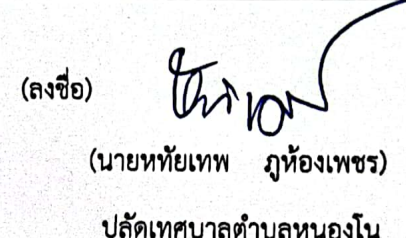 (ลงชื่อ)
(นายหทัยเทพ ภูห้องเพชร)
ปลัดเทศบาลตำบลหนองโน